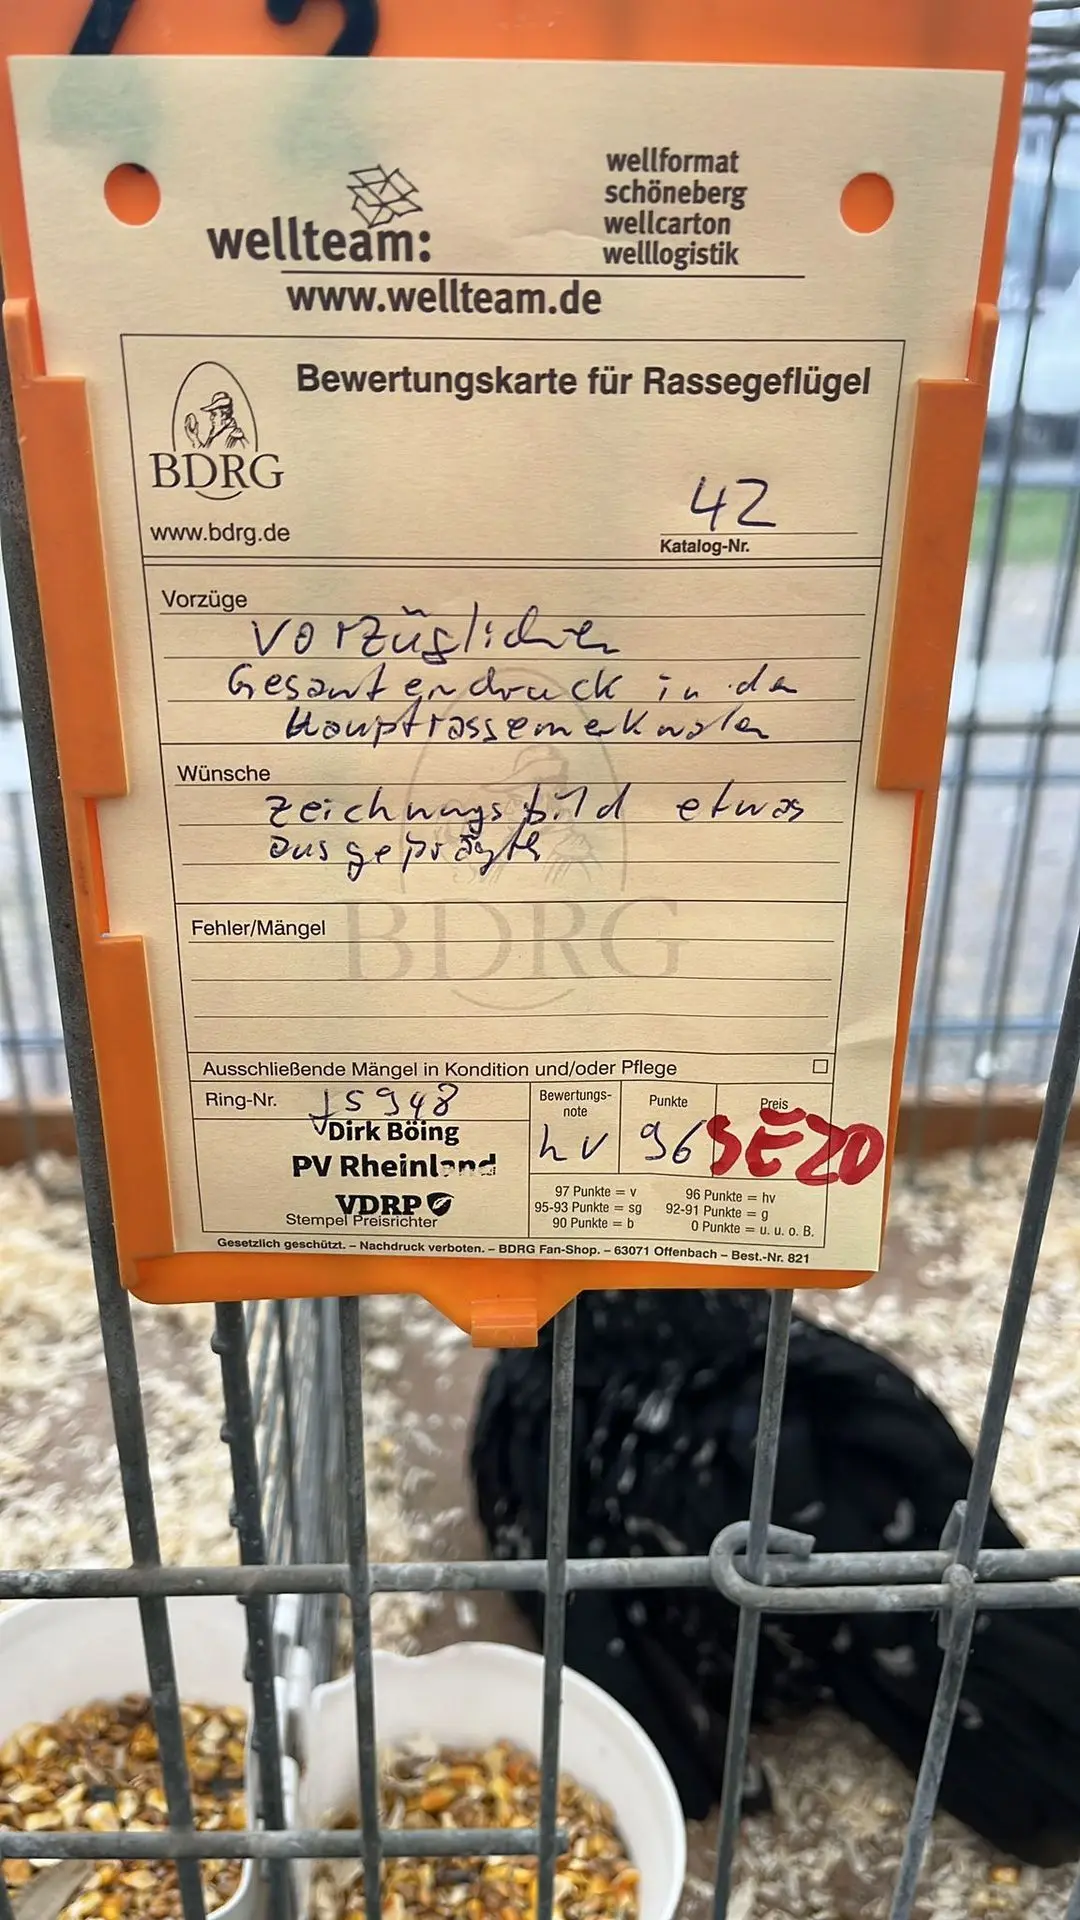 wellteam:
wellformat
schöneberg
wellcarton
welllogistik
www.wellteam.de
BDRG
Bewertungskarte für Rassegeflügel
www.bdrg.de
42
Katalog-Nr.
Vorzüge
Vorzüglicher
Gesamtendruck in den
Hauptrassemerkmalen
Wünsche
Zeichnungsbild etwas
ausgeprägter
Fehler/Mängel
BDRG
Ausschließende Mängel in Kondition und/oder Pflege
Ring-Nr.
5948
Dirk Böing
PV Rheinland
VDRP
Stempel Preisrichter
Bewertungs-
note
hv
Punkte
96
Preis
SEZD
97 Punkte = v
95-93 Punkte = sg
90 Punkte = b
96 Punkte = hv
92-91 Punkte = g
0 Punkte = u. u. o. B.
Gesetzlich geschützt. – Nachdruck verboten. – BDRG Fan-Shop. – 63071 Offenbach – Best.-Nr. 821